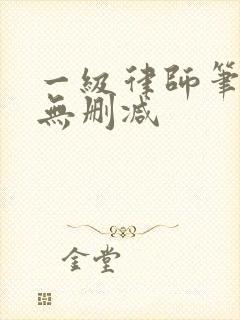 一級律師筆
無刪減
金堂